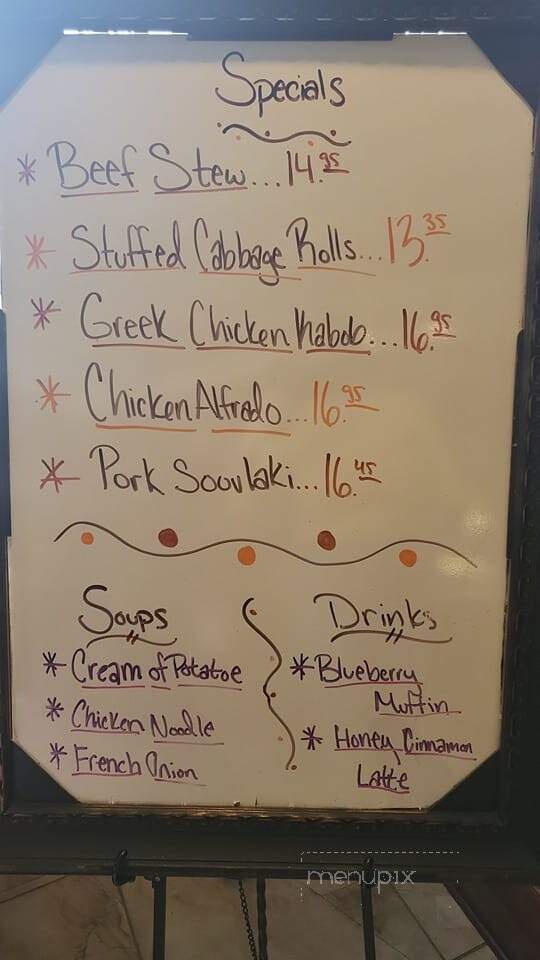 Specials
* Beef Stew...14.95
* Stuffed Cabbage Rolls...13.35
* Greek Chicken Kabob...16.95
* Chicken Alfredo...16.95
* Pork Souvlaki...16.45
Soups
* Cream of Potatoe
* Chicken Noodle
* French Onion
Drinks
* Blueberry
Muffin
* Honey Cinnamon
Latte
menupix